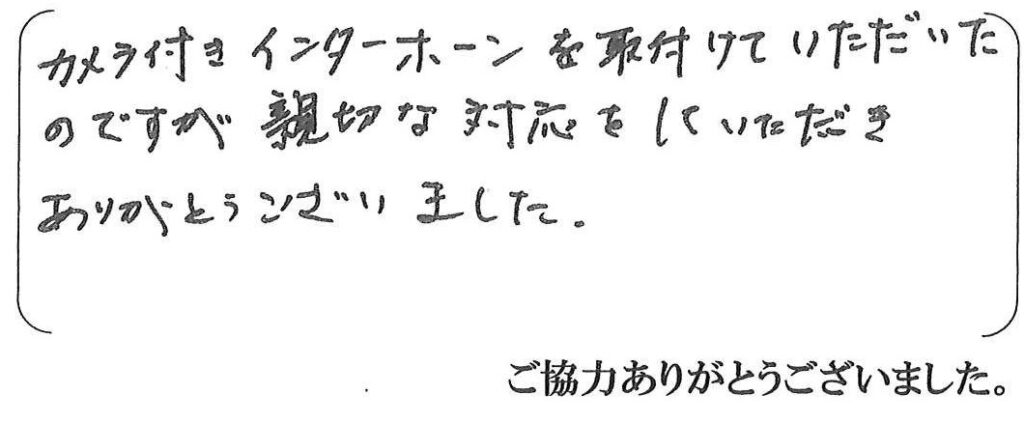 カメラ付きインターホーンを取付けていただいた
のですが親切な対応をしていただき
ありがとうございました.
ご協力ありがとうございました。